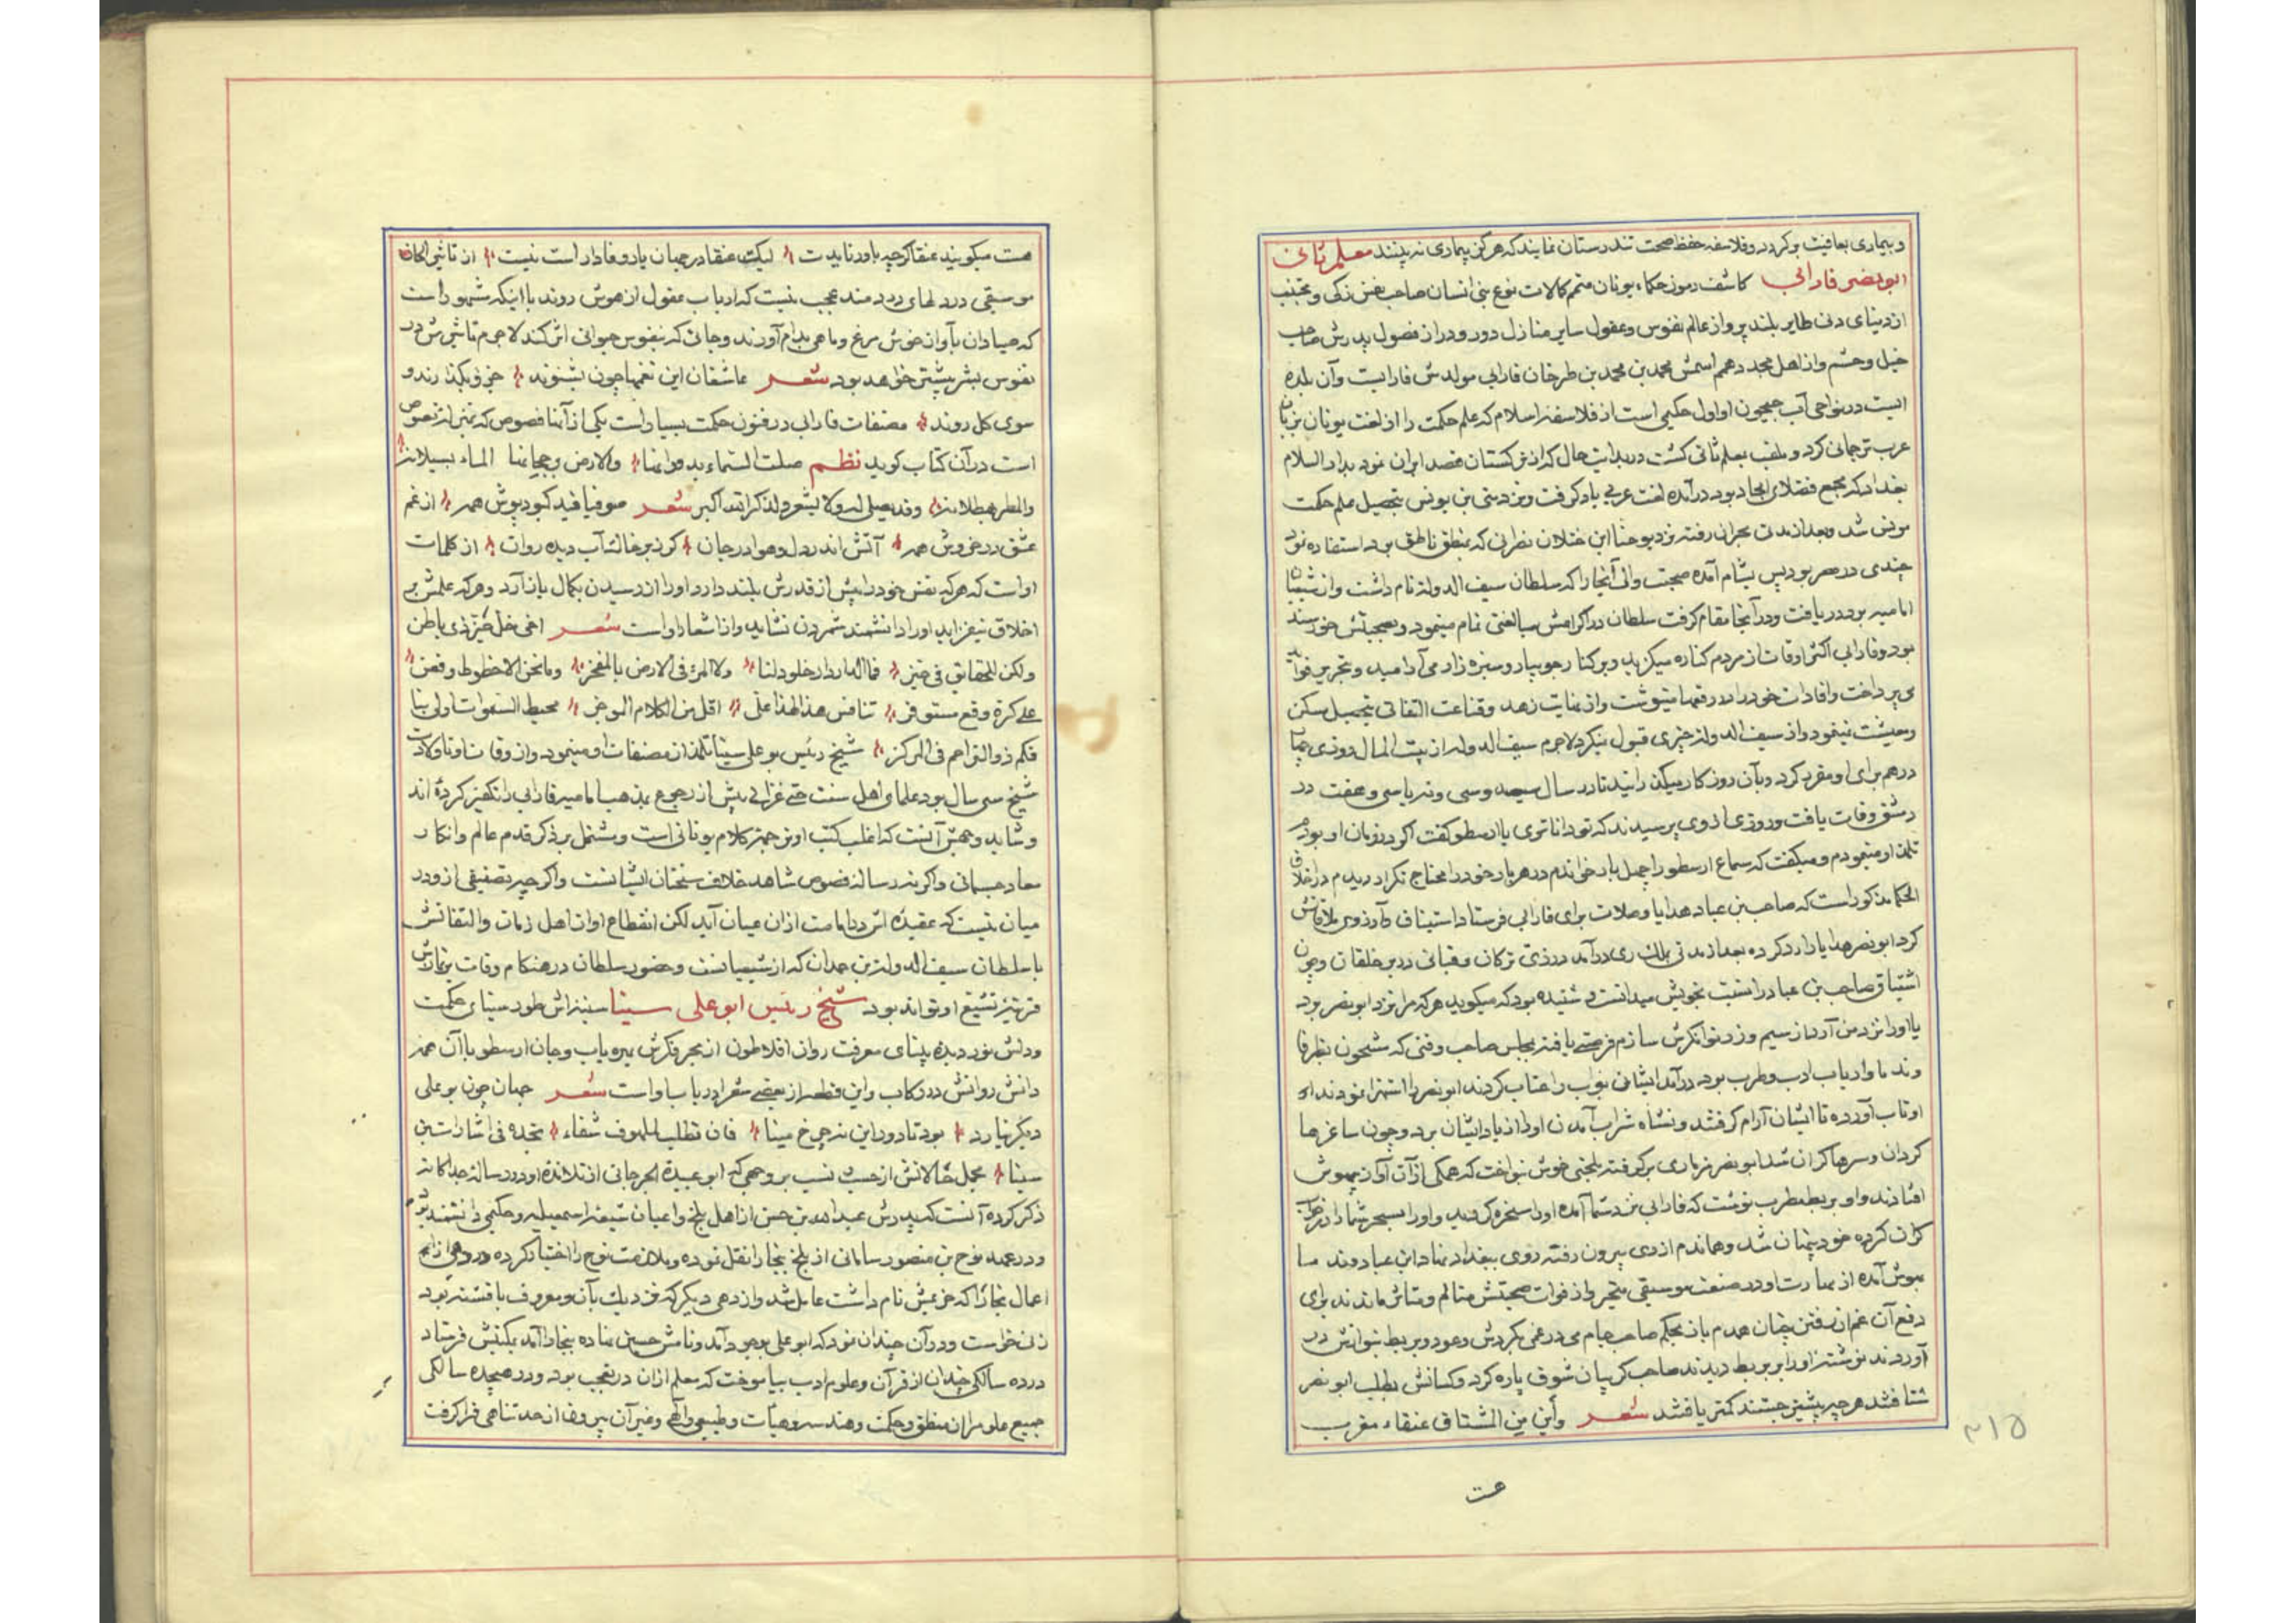 و بیماری بعافیت بر کردد و فلاسفه حفظ صحت تندرستان نمایند که هرکز بیماری نه بینند معلم ثانی
ابو نصر فارابی کاشف رموز حکماء یونان متمم کمالات نوع بنی انسان صاحب نفس زکی و مجتنب
از دنیای دنی طایر بلند پرواز عالم نفوس و عقول سایر منازل دور و دراز فصول پدرش صاحب
خیل و حشم و از اهل مجد و همم اسمش محمد بن محمد بن طرخان فارابی مولدش فارابست و آن بلده
ایست در نواحی آب جیحون او اول حکیمی است از فلاسفه اسلام که علم حکمت را از لغت یونان بزبان
عرب ترجمانی کرد و ملقب بمعلم ثانی کشت در بدایت حال که از ترکستان قصد ایران نمود بدار السلام
بغداد که مجمع فضلای امجاد بود درآمده لغت عربی یاد کرفت و نزد متی بن یونس بتحصیل علم حکمت
مونس شد و بعد از مدتی بحران رفته نزد یوحنا ابن خیلان نصرانی که بمنطق ناطق بود استفاده نمود
چندی در مصر بود پس بشام آمده صحبت والی آنجا را که سلطان سیف الدوله نام داشت و از شیعیان
امامیه بود دریافت و در آنجا مقام کرفت سلطان در اکرامش مبالغتی تمام مینمود و بصحبتش خورسند
بود و فارابی اکثر اوقات از مردم کناره میکزید و بر کنار جویبار و سبزه زار می آرامید و بتحریر فواید
می پرداخت و افادات خود را در رقعها مینوشت و از غایت زهد و قناعت التفاتی بتحصیل سکن
و معیشت نینمود و از سیف الدوله چیزی قبول نیکرد لاجرم سیف الدوله از بیت المال روزی چهار
درهم برای او مقرر کرد و بآن روزکار میکذرانید تا در سال سیصد و سی و نه یا سی و هفت در
دمشق وفات یافت و روزی از وی پرسیدند که تو داناتری یا ارسطو کفت اکر در زمان او بودم
تلمذ او مینمودم و میکفت که سماع ارسطو را چهل بار خواندم در هر بار خود را محتاج تکرار دیدم در اخلاق
الحکما مذکور است که صاحب بن عباد هدایا و صلات برای فارابی فرستاد استیناف و آرزوی ملاقاتش
کرد ابو نصر هدایا را رد کرده بعد از مدتی بملک ری درآمد در زی ترکان و قبائی در بر خلقان و چون
اشتیاق صاحب بن عباد را نسبت بخویش میدانست و شنیده بود که میکوید هرکه مرا نزد ابو نصر برد
یا او را نزد من آرد از سیم و زر توانکرش سازم فرصتی یافته بمجلس صاحب وقتی که مشحون بظرفا
و ندما و ارباب ادب و طرب بود درآمد ایشان بواب را عتاب کردند ابو نصر را استهزا نمودند او
او تاب آورده تا ایشان آرام کرفتند و نشاه شراب آمدن او را از یاد ایشان برد و چون ساغرها
کردان و سرها کران شد ابو نصر مزماری برکرفته بلحنی خوش نواخت که همکی از آن آواز بیهوش
افتادند و او بر بربط مطرب نوشت که فارابی نزد شما آمده او را سخره کردید و او را بسحر شما را در خواب
کران کرده خود پنهان شد و هماندم از ری بیرون رفته روی ببغداد نهاد ابن عباد و ندما
بهوش آمده از مهارت او در صنعت موسیقی متحیر و از فوات صحبتش متالم و متاثر ماندند برای
دفع آن غم از رفتن چنان همدم باز بحکم صاحب جام می در غمی بکردش و عود و بربط بنوازش در
آوردند نوشته او را بر بربط دیدند صاحب کریبان شوق پاره کرد و کسانش بطلب ابو نصر
شتافتند هر چه بیشتر جستند کمتر یافتند شعر و أین من المشتاق عنقاء مغرب
هست
۲۱۵
هست میکویند عنقا کرچه باور نایدت لیکن عنقا در جهان یار وفادار است نیست از تاثیر الحان
موسیقی در دلهای دردمند عجب نیست که ارباب عقول از هوش روند با اینکه مشهور است
که صیادان بآواز خوش مرغ و ماهی بدام آورند و جائی که بنفوس حیوانی اثر کند لاجرم تاثیرش در
نفوس بشر بیشتر خواهد بود شعر عاشقان این نغمها چون بشنوند جزو بکذارند و
سوی کل روند مصنفات فارابی در فنون حکمت بسیار است یکی از آنها فصوص که بهتر از نصوص
است در آن کتاب کوید نظم صلت السماء بدورانها والارض برجحانها الماء بسیلانه
والمطر بهطلانه وقد یصلی له ولا یشعر ولذکر الله اکبر شعر صوفیا فید کبودپوش همه از غم
عشق در خروش همه آتش اندر دل و هوا در جان کرد بر خاک آب دیده روان از کلمات
او است که هرکه نفس خود را بیش از قدرش بلند دارد او را از رسیدن بکمال باز آرد و هرکه علمش بر
اخلاق نیفزاید او را دانشمند شمردن نشاید و از اشعار او است شعر اخی خل حیز ذی باطل
ولکن للحقایق فی حیز فما الدار دار خلود لنا ولا المرء فی الارض بالمعجز وما نحن الا خطوط وقعن
علی کرة وقع مستوفز تنافس هذا لهذا علی اقل من الکلام الموجز محیط السموات اولی بنا
فکم ذو التزاحم فی المرکز شیخ رئیس بو علی سینا تلمذ از مصنفات او مینمود و از وفات او تا ولادت
شیخ سی سال بود علمای اهل سنت حتی غزالی پیش از رجوع بمذهب امامیه فارابی را تکفیر کرده اند
و شاید وجهش آنست که اغلب کتب او ترجمه کلام یونانی است و مشتمل بر ذکر قدم عالم و انکار
معاد جسمانی و اکر نه رساله فصوص شاهد خلاف سخنان ایشانست و اکرچه تصنیفی از او در
میان نیست که عقیده اش در امامت از ان عیان آید لکن انقطاع او از اهل زمان و التفاتش
با سلطان سیف الدوله بن حمدان که از شیعیانست و حضور سلطان در هنکام وفات بر نمازش
قرینه تشیع او تواند بود شیخ رئیس ابو علی سینا سینه اش طور سینای حکمت
و دلش نور دیده بینای معرفت روان افلاطون از بحر فکرش بهره یاب و جان ارسطو با آن همه
دانش روانش در رکاب و این قطعه از بعضی شعرا در باب او است شعر جهان چون بو علی
دیکر نیارد بود تا دور این نه چرخ مینا فان تطلب لملهوف شفاء تجده فی اشارات بن
سینا مجمل حالاتش از حیث نسب بر وجهی که ابو عبیدة الجرجانی از تلامذه او در رساله جداکانه
ذکر کرده آنست که پدرش عبد الله بن حسن از اهل بلخ و اعیان شیعه اسمعیلیه و حکیمی دانشمند بود
و در عهد نوح بن منصور سامانی از بلخ ببخارا نقل نموده و ملازمت نوح را اختیار کرده در دهی از اهم
اعمال بخارا که خرمیثن نام داشت عامل شد و از دهی دیکر که نزدیک بآن و معروف بافشنه بود
زن خواست و در آن چندان نمود که ابو علی بوجود آمد و نامش حسین نهاده ببخارا آمد بمکتبش فرستاد
در ده سالکی چندان از قرآن و علوم ادب بیاموخت که معلم از ان در تعجب بود و در هیجده سالکی
جمیع علوم را از منطق و حکمت و هندسه و هیأت و طبیعی و الهی و غیر آن بیرون از حد تناهی فرا کرفت